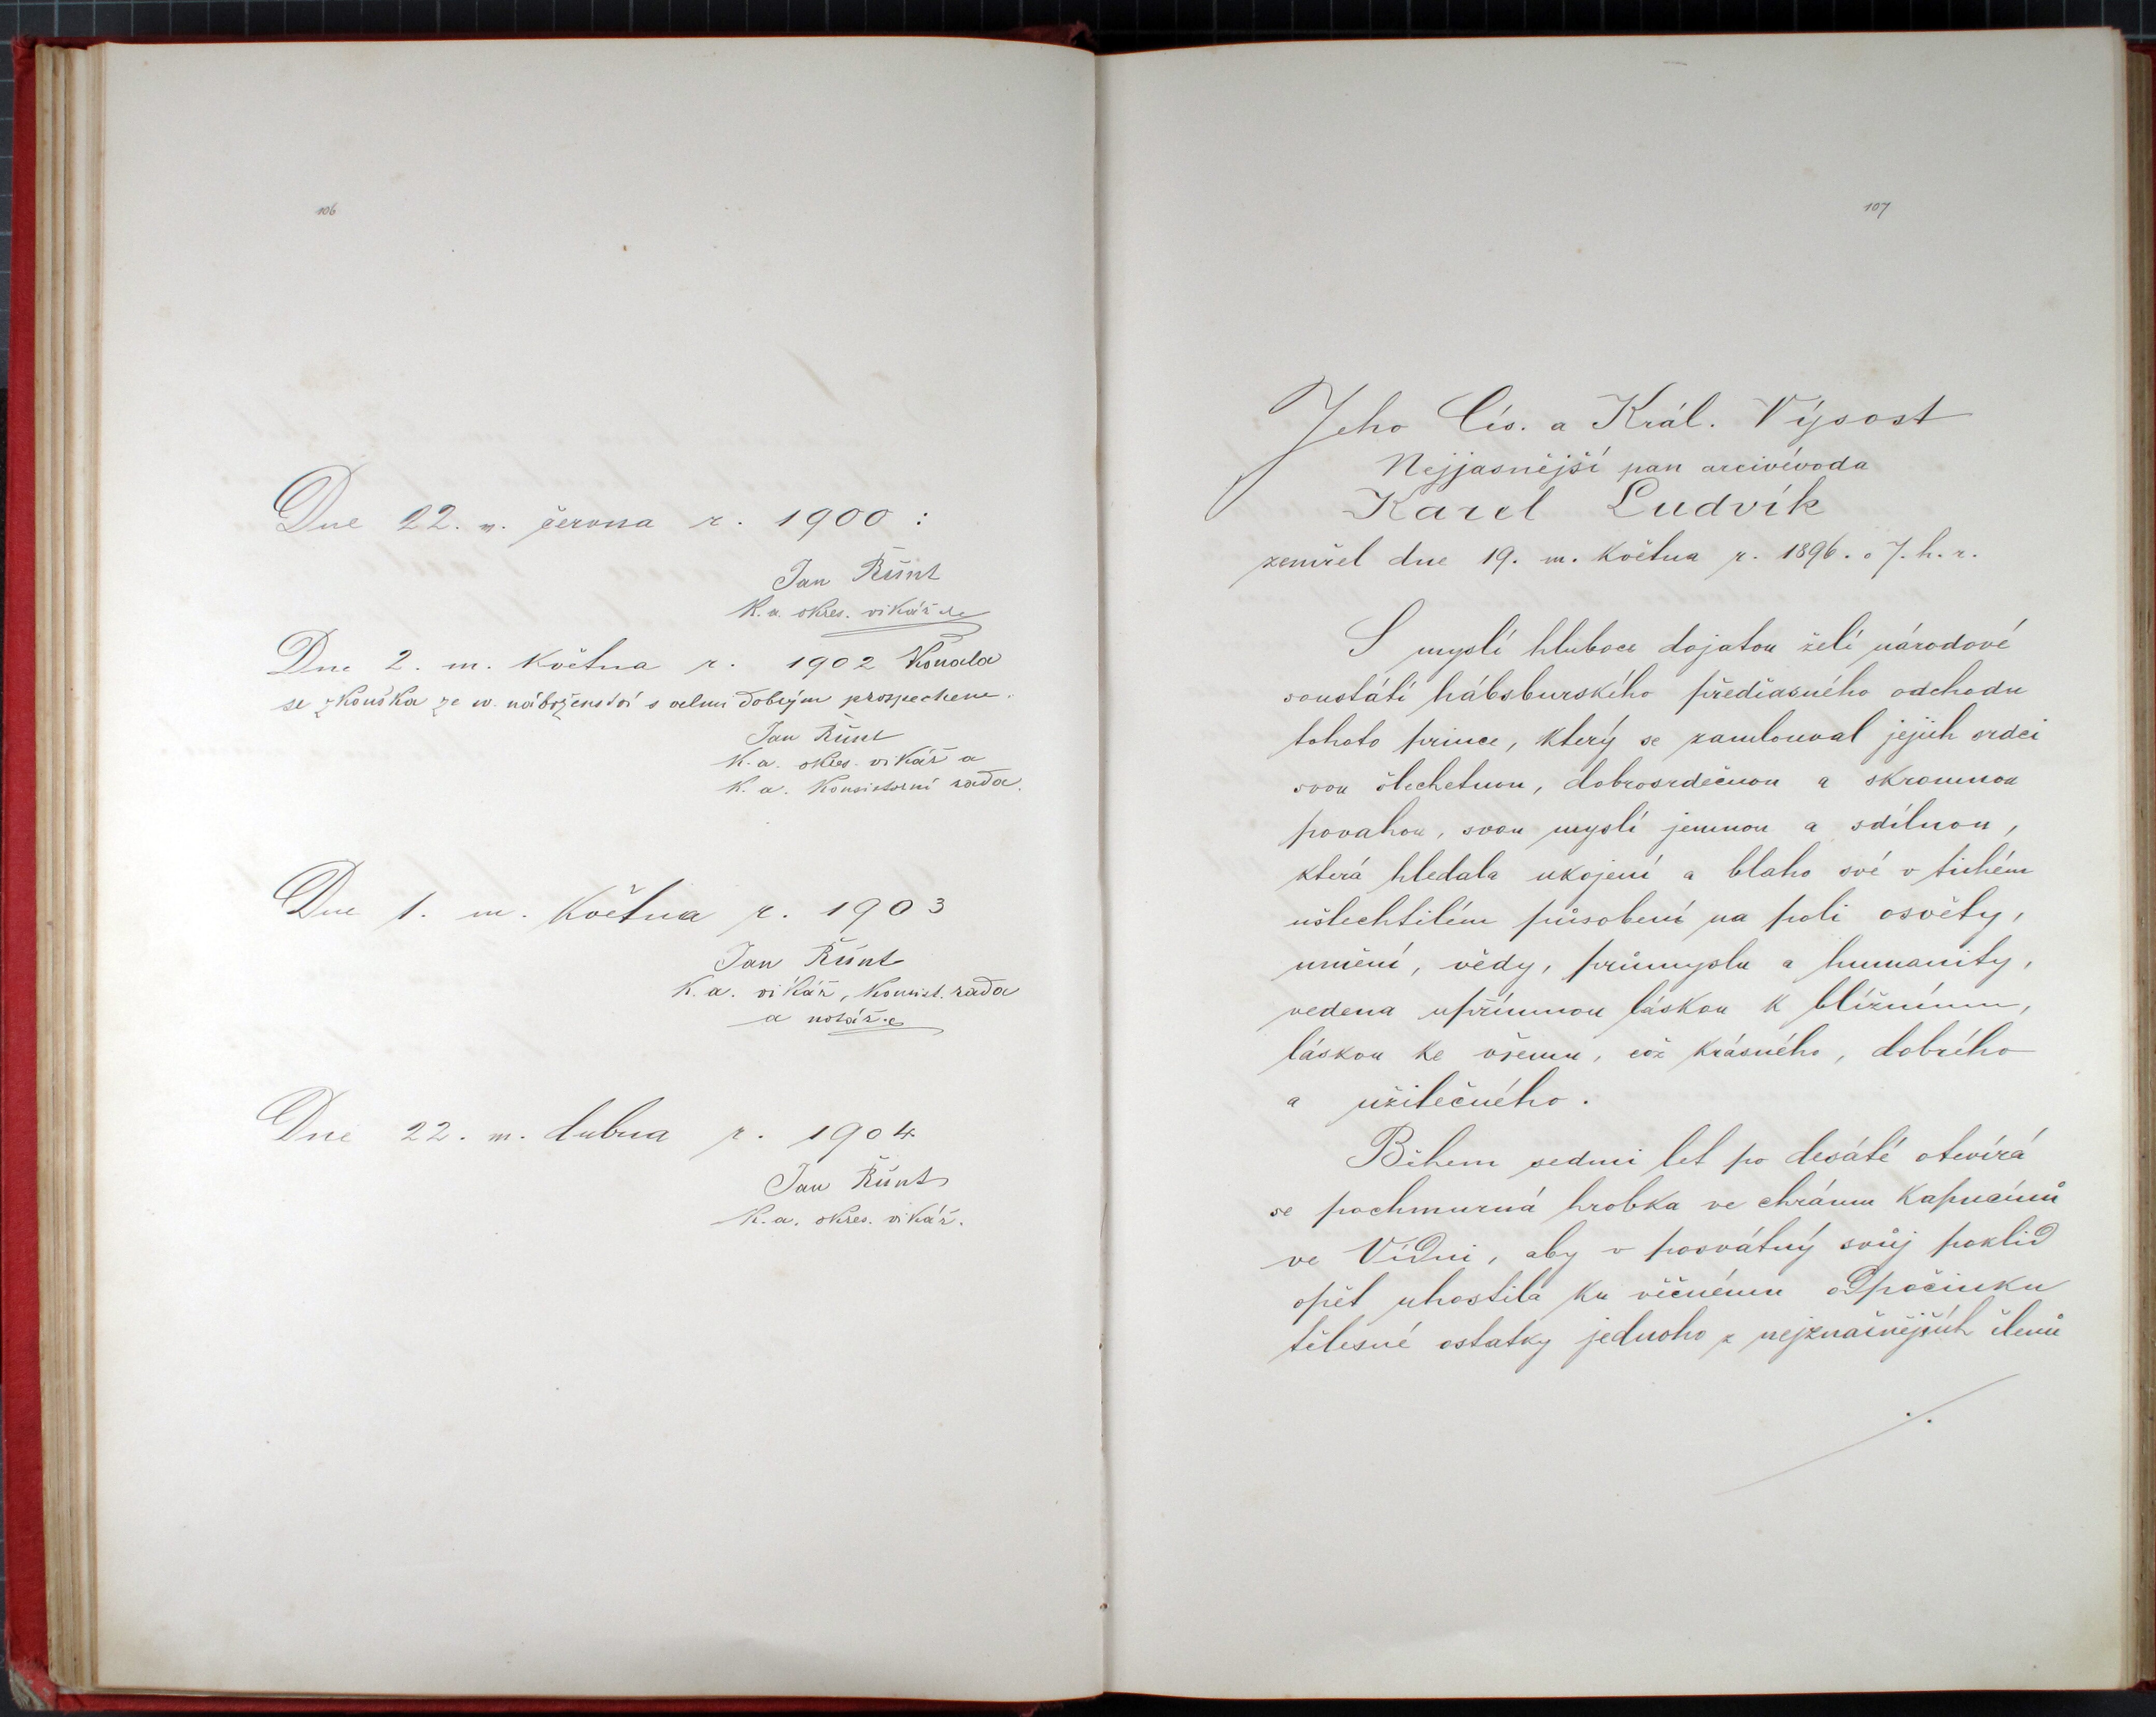 106
Dne 22. m. června r. 1900 :
Jan Řunt
K. a. okres. vikář
Dne 2. m. Května r. 1902 Konala
se zkouška ze sv. náboženství s velmi dobrým prospěchem.
Jan Řunt
K. a. okres. vikář a
K. a. Konsistorní rada.
Dne 1. m. Května r. 1903
Jan Řunt
K. a. vikář, Konsist. rada
a notář
Dne 22. m. dubna r. 1904
Jan Řunt
K. a. okres. vikář.
107
Jeho Cís. a Král. Výsost
Nejjasnější pan arcivévoda
Karel Ludvík
zemřel dne 19. m. Května r. 1896. o 7. h. r.
S myslí hluboce dojatou želí národové
soustátí hábsburského předčasného odchodu
tohoto prince, který se zamlouval jejich srdci
svou šlechetnou, dobrosrdečnou a skromnou
povahou, svou myslí jemnou a sdílnou,
která hledala ukojení a blaho své v tichém
ušlechtilém působení na poli osvěty,
umění, vědy, průmyslu a humanity,
vedena upřímnou láskou k bližnímu,
láskou ke všemu, což krásného, dobrého
a užitečného.
Během sedmi let po desáté otevírá
se pochmurná hrobka ve chrámu Kapucínů
ve Vídni, aby v posvátný svůj poklid
opět uhostila ku věčnému odpočinku
tělesné ostatky jednoho z nejznačnějších členů
./.